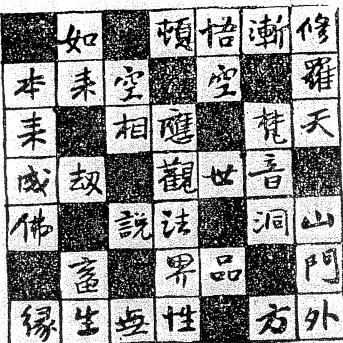 如 頓悟漸修
本来空 空 羅
来 相應 梵天
成劫 觀世音
佛 説法 洞山
畜 界品 門
縁生無性 方外